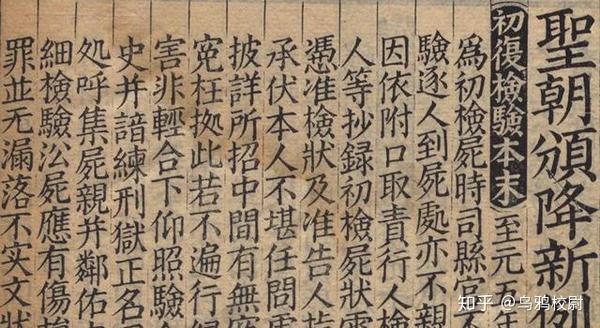 聖朝頒降新例
初復檢驗本末 至元五年
為初檢屍時司縣官不
驗逐人到屍處亦不親
因依附口取責行人檢
人等抄録初檢屍狀
憑准檢狀及准告人指
承伏本人不堪任問
披詳所招中間有無
寃枉㨿此若不遍行
害非輕合下仰照驗
史并諳練刑獄正名
処呼集屍親并鄰佑
細檢驗㳂屍應有傷
罪並无漏落不实文狀
知乎 @乌鸦校尉